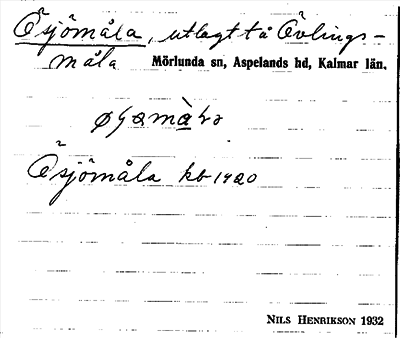 Ösjömåla, utlagt tå Övlings-
måla Mörlunda sn, Aspelands hd, Kalmar län.
Ösjömåla kb 1920
NILS HENRIKSON 1932